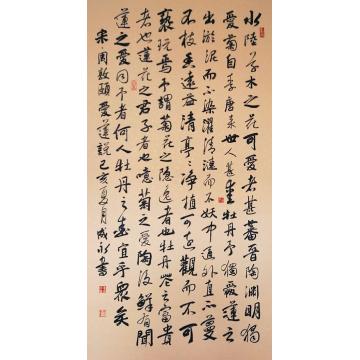 水陸草木之花可愛者甚蕃晉陶淵明獨
愛菊自李唐來世人甚愛牡丹予獨愛蓮之
出淤泥而不染濯清漣而不妖中通外直不蔓
不枝香遠益清亭亭淨植可遠觀而不可
褻玩焉予謂菊花之隱逸者也牡丹花之富貴
者也蓮花之君子者也噫菊之愛陶後鮮有聞
蓮之愛同予者何人牡丹之愛宜乎眾矣
宋周敦頤愛蓮說己亥夏月成永書